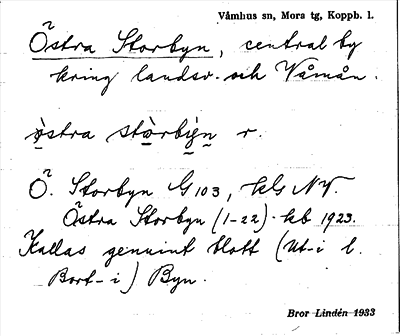 Våmhus sn, Mora tg, Koppb. l.
Östra Storbyn, central by
kring landsv. och Våmån.
östra stòrbỳn r.
Ö. Storbyn G 103, kls NV.
Östra Storbyn (1-22). kb 1923.
Kallas genuint blott (Ut-i l.
Bort-i) Byn.
Bror Lindén 1933